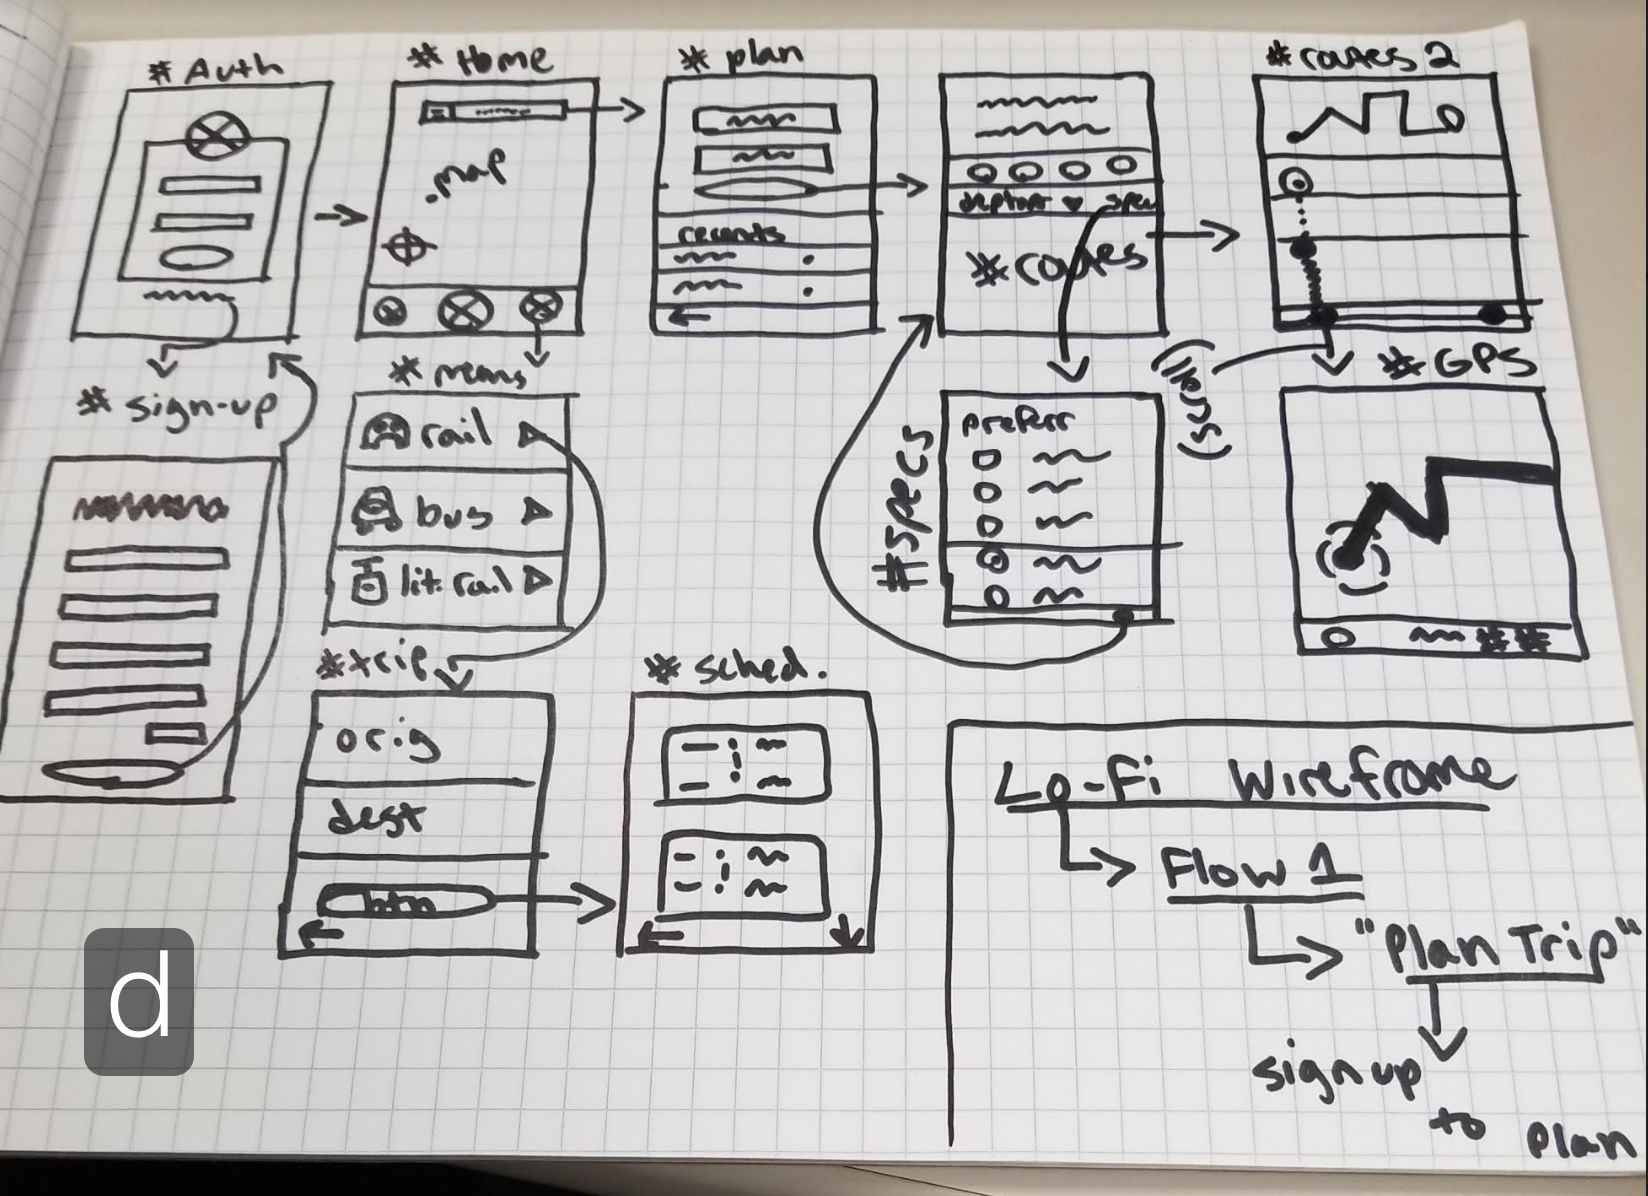 # Auth
# Home
# plan
# routes 2
.map
recents
# routes
# sign-up
# means
rail
bus
lit. rail
# specs
preferr
(small)
# GPS
# trip
orig
dest
btn
# sched.
Lo-Fi Wireframe
Flow 1
"Plan Trip"
sign up
to plan
d